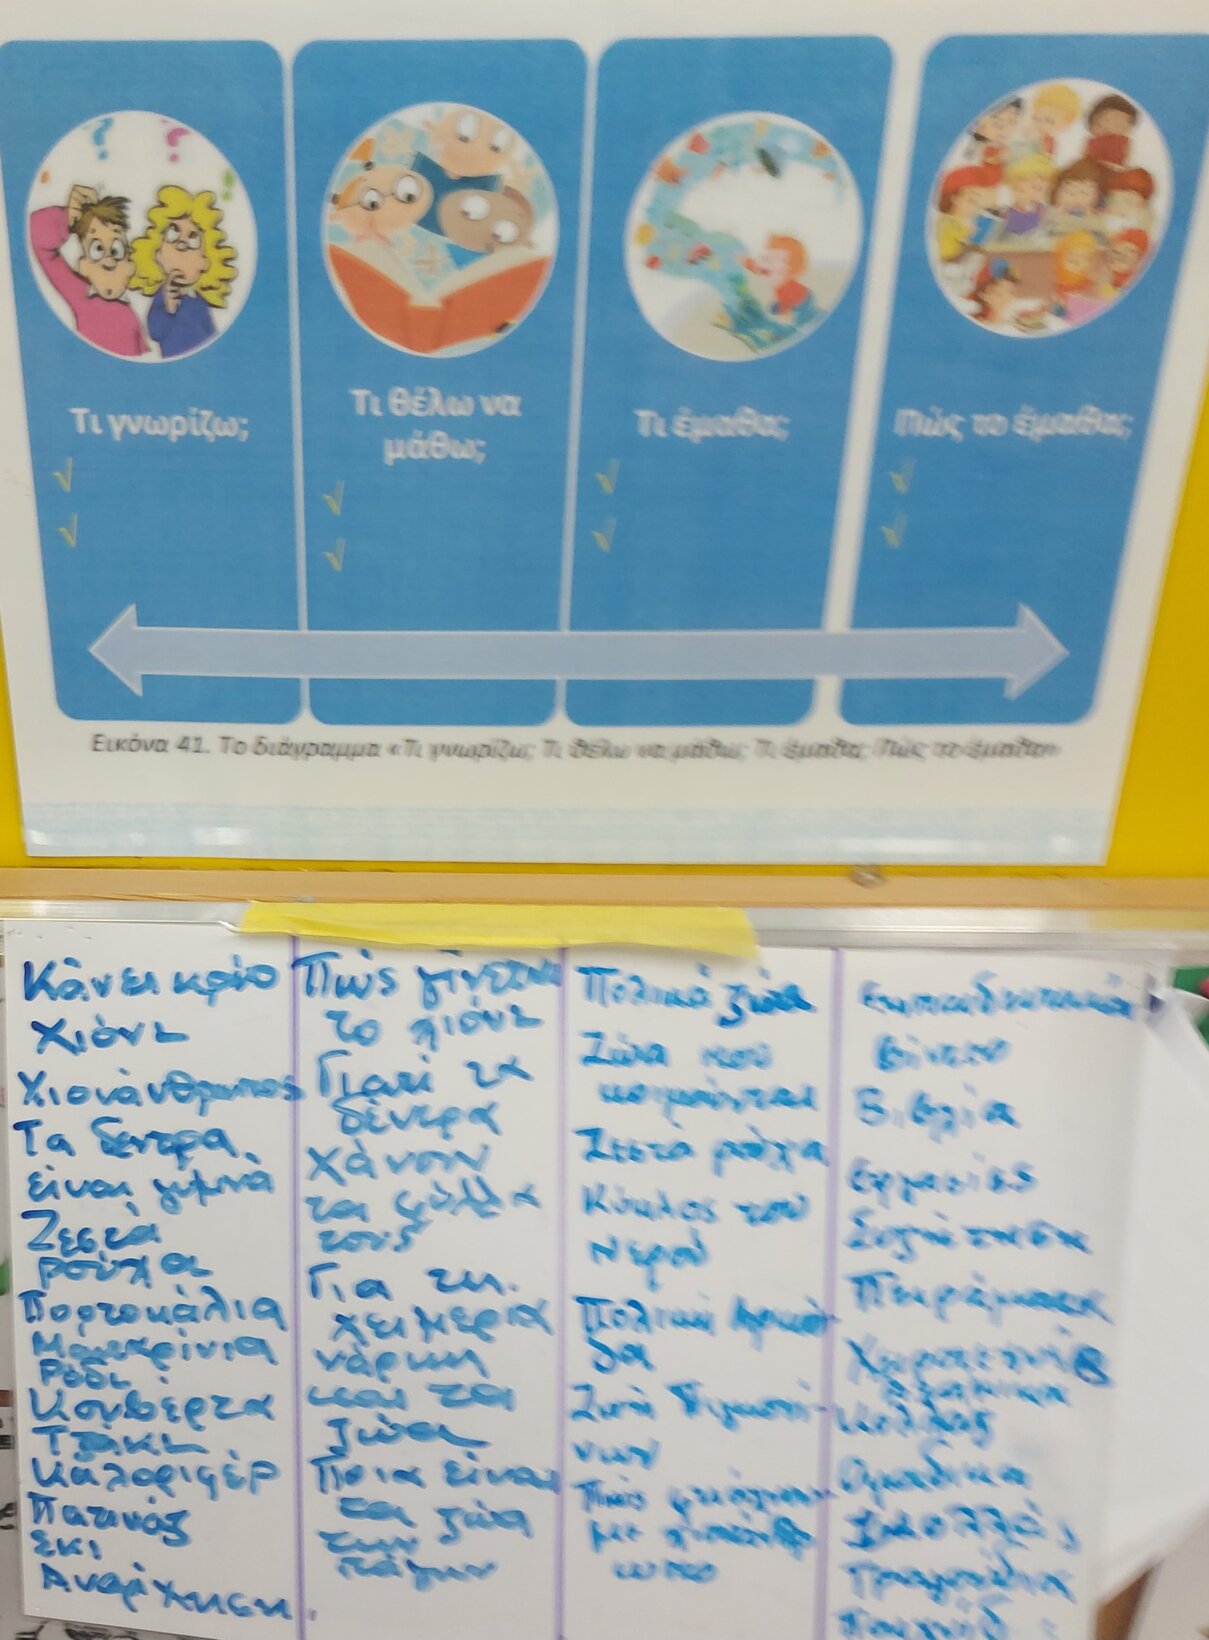 Τι γνωρίζω;
√
√
Τι θέλω να
μάθω;
√
√
Τι έμαθα;
√
√
Πώς το έμαθα;
√
√
Εικόνα 41. Το διάγραμμα «Τι γνωρίζω; Τι θέλω να μάθω; Τι έμαθα; Πώς το έμαθα»
Κάνει κρύο
Χιόνι
Χιονάνθρωπος
Τα δεντρα
είναι γυμνά
Ζεστά
ρούχα
Πορτοκάλια
Μανταρίνια
Ρόδι
Κουβερτα
Τζακι
Καλοριφέρ
Πατινάζ
Σκι
Αναρίχηση
Πώς γίνεται
το χιόνι
Γιατί τα
δέντρα
χάνουν
τα φύλλα
τους
Για τη
χειμερία
νάρκη
και τα
ζώα
Ποια είναι
τα ζώα
των
πάγων
Πολικά ζώα
Ζώα που
κοιμούνται
Ζεστά ρούχα
Κύκλος του
νερού
Πολική αρκού
δα
Ζωή πιγκουί-
νων
Πώς φτιάχνου
με χιονάνθρ
ωπο
Εκπαιδευτικά
βίντεο
Βιβλία
εργασίες
Συζήτηση
Πειράματα
Χειροτεχνίες
κολλάζ
Ομαδικα
Τραγούδια